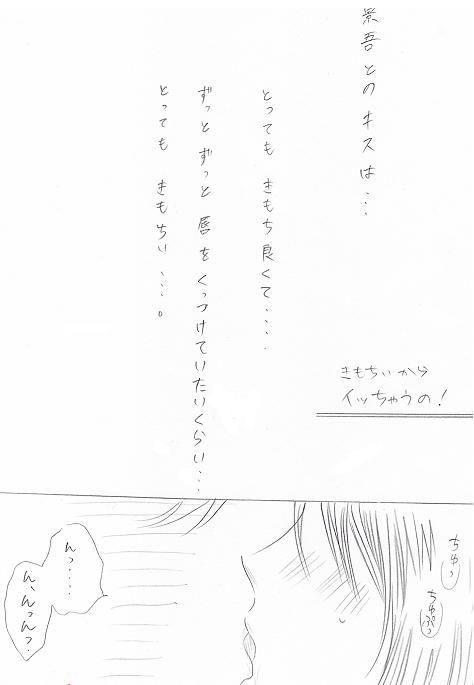 景吾とのキスは…
とっても きもち良くて….
ずっと ずっと 唇をくっつけていたいくらい…
とっても きもちぃ…。
きもちぃから
イッちゃうの!
ちゅっ
ちゅぷっ
んっ……
ん、んっんっ?